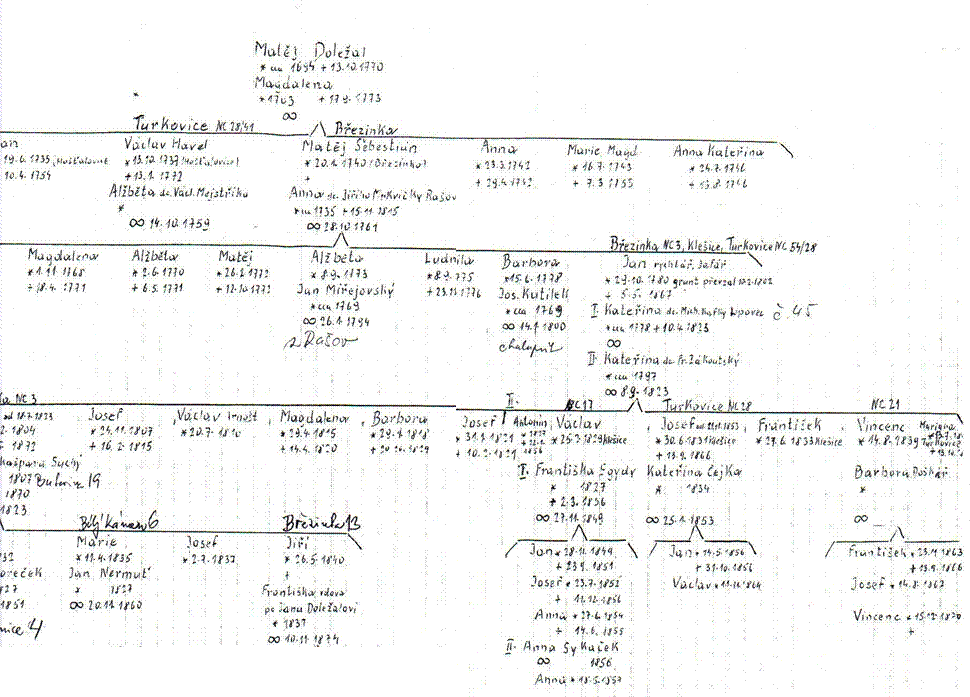 Matěj Doležal
* asi 1694 + 13.10.1770
Magdalena
* 1703 + 17.9.1773
∞
Turkovice NC 28/41
Březinka
an
19.6.1735
10.4.1754
Václav Havel
+ 13.1.1772
Alžběta dc. Václ. Mejstříka
*
∞ 14.10.1759
Matěj Šebestián
* 20.1.1740 (Březinka)
+
Anna dc. Jiřího Mrkvičky Rašov
* asi 1735 + 15.11.1815
∞ 28.10.1761
Anna
* 23.3.1742
+ 29.4.1742
Marie Magd.
* 16.7.1743
+ 7.3.1755
Anna Kateřina
* 24.7.1746
Magdalena
+ 18.4.1771
Alžběta
* 2.6.1770
+ 6.5.1771
Matěj
* 26.2.1772
+ 12.10.1772
Alžběta
* 8.9.1773
Jan Miřejovský
* asi 1769
∞ 26.1.1794
z Rašov
Ludmila
* 8.9.775
+ 23.11.1776
Barbora
* 15.6.1778
Jos. Kutílek
* asi 1769
∞ 14.1.1800
chalupník
Březinka NC3, Klešice, Turkovice NC 54/28
Jan rychtář, šafář
* 29.10.1780 grunt převzal
+ 5.5.1867
I. Kateřina dc. Mich. Kafky Lipovec č. 45
* asi 1778 + 10.4.1823
∞
II. Kateřina dc. Fr. Žákoutský
* asi 1797
∞ 8.9.1823
NC 3
1804
1872
Kašpara Suchý
1807 19
1870
1823
Josef
* 24.11.1807
+ 16.2.1815
Václav Arnošt
* 20.7.1810
Magdalena
* 29.4.1815
+ 14.4.1820
Barbora
II.
Josef
* 31.1.1821
+ 10.2.1821
Antonín
1856
NC 17
Václav
* 25.7.1829 Klešice
I. Františka Egydy
* 1827
+ 2.3.1856
∞ 27.11.1849
Turkovice NC 28
Josef
* 30.6.1831 Klešice
+ 13.9.1866
Kateřina Čejka
* 1834
∞ 25.1.1853
František
* 27.6.1833 Klešice
NC 21
Vincenc
* 14.8.1839 Turkovice
Barbora
*
∞
Mariana
Bílý Kámen 6
Marie
* 11.4.1835
Jan Nermuť
* 1827
∞ 20.11.1860
Josef
* 2.7.1837
Březinka 13
Jiří
* 26.5.1840
+
Františka vdova
po Janu Doležalovi
* 1837
∞ 10.11.1874
1851
nice 4
Jan * 28.11.1849
+ 23.9.1851
Josef * 23.7.1852
+ 12.12.1856
Anna * 27.6.1854
+ 14.6.1855
II. Anna Sykáček
∞ 1856
Anna * 18.5.1857
Jan * 14.5.1856
+ 31.10.1856
Václav * 11.11.1864
František * 23.4.1863
+ 13.9.1866
Josef * 14.8.1867
Vincenc * 15.12.1870
+